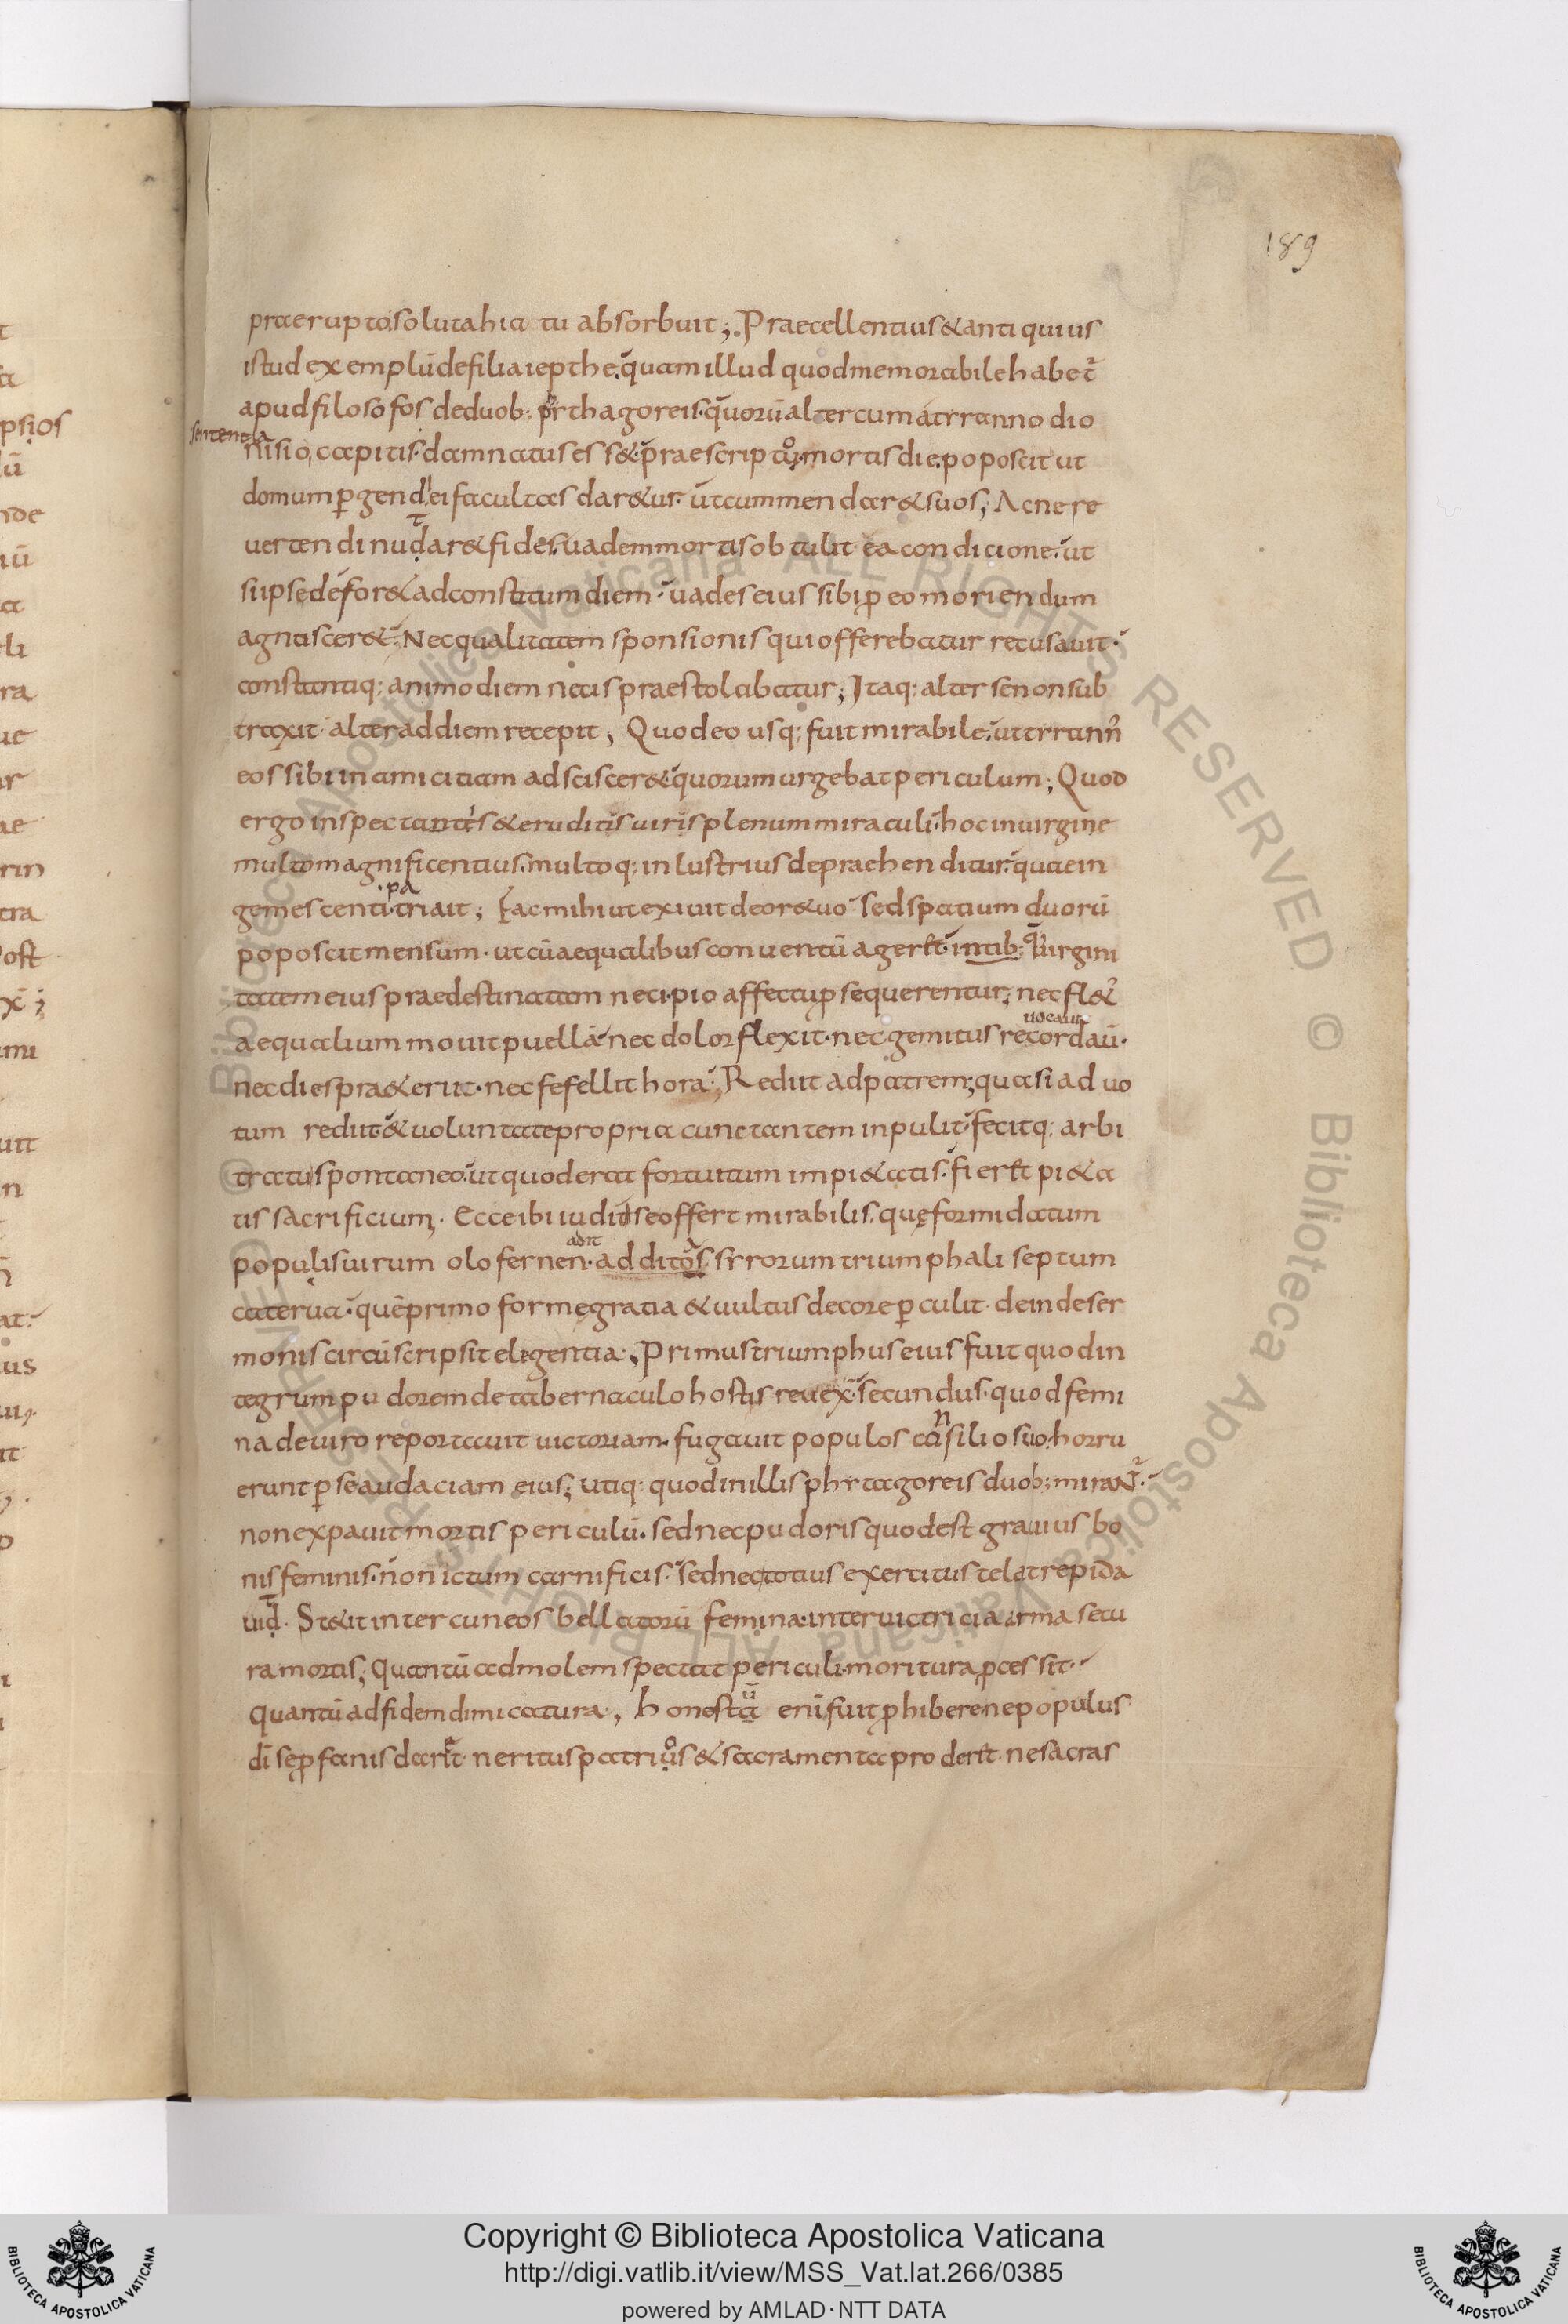 189
praerupto soluta hiatu absorbuit; Praecellentius & antiquius
istud exemplū de filia iepthe. quam illud quod memorabile habet᷑
apud filosofos de duob: pythagoreis. quorū alter cum a tyranno dio
sententia
nisio, capitis damnatus ess& praescripto mortis die. poposcit ut
domum ꝑgendi ei facultas dar&ur. ut cummendar& suos; Ac ne re
uertendi nutar& fides. uadem mortis obtulit ea condicione. ut
si ipse defor& ad constitutum diem. uades eius sibi ꝓ eo moriendum
agnuscer&. Nec qualitatem sponsionis qui offerebatur recusauit.
constantiq: animo diem necis praestolabatur; Itaq: alter se non sub
traxit alter ad diem recepit; Quod eo usq: fuit mirabile. ut tyrann᾿
eos sibi in amicitiam adsciscer& quorum urgebat periculum; Quod
ergo in spectantis & eruditis uiris plenum miraculi. hoc in uirgine
multo magnificentius. multoq: inlustrius depraehenditur. quae in
pa
gemescenti tri ait; Fac mihi ut exiuit de or& uo. sed spatium duorū
poposcit mensum. ut cū aequalibus conuentū ager&. in tib: q̄ uirgini
tatem eius praedestinatam neci. pio affectu ꝓsequerentur; nec fl&᾿
uocauit
aequalium mouit puellā. nec dolor flexit. nec gemitus recordaū.
nec dies pra&eriit. nec fefellit hora; Rediit ad patrem; quasi ad uo
tum rediit & uoluntate propria cunctantem inpulit. fecitq: arbi
tratu spontaneo. ut quod erat fortuitum impi&atis. fier& pi&a
tis sacrificium. Ecce ibi iudit se offert mirabilis. quę formidatum
adit
populis uirum olofernen. additos syrorum triumphali septum
caterua. quē primo forme gratia & uultus decore ꝑculit. deinde ser
monis circūscripsit elegentia; Primus triumphus eius fuit quod in
tegrum pudorem de tabernaculo hostis reuex̄. secundus. quod femi
na de uiro reportauit uictoriam. fugauit populos consilio suo. horru
erunt perse audaciam eius; utiq: quod in illis phytagoreis duob: mirant᷑.
non expauit mortis periculū. sed nec pudoris quod est grauius bo
nis feminis. non ictum carnificis. sed nec totius exertitus tela trepida
uit. St&it inter cuneos bellatorū femina. inter uictricia arma secu
ra mortis; Quantū ad molem spectat periculi. moritura ꝓcessit.
Quantū ad fidem dimicatura; Honestū enī fuit ꝓhibere ne populus
dī se ꝓfanis dar&. ne ritus patrios & sacramenta proder&. ne sacras
Copyright © Biblioteca Apostolica Vaticana
http://digi.vatlib.it/view/MSS_Vat.lat.266/0385
powered by AMLAD·NTT DATA